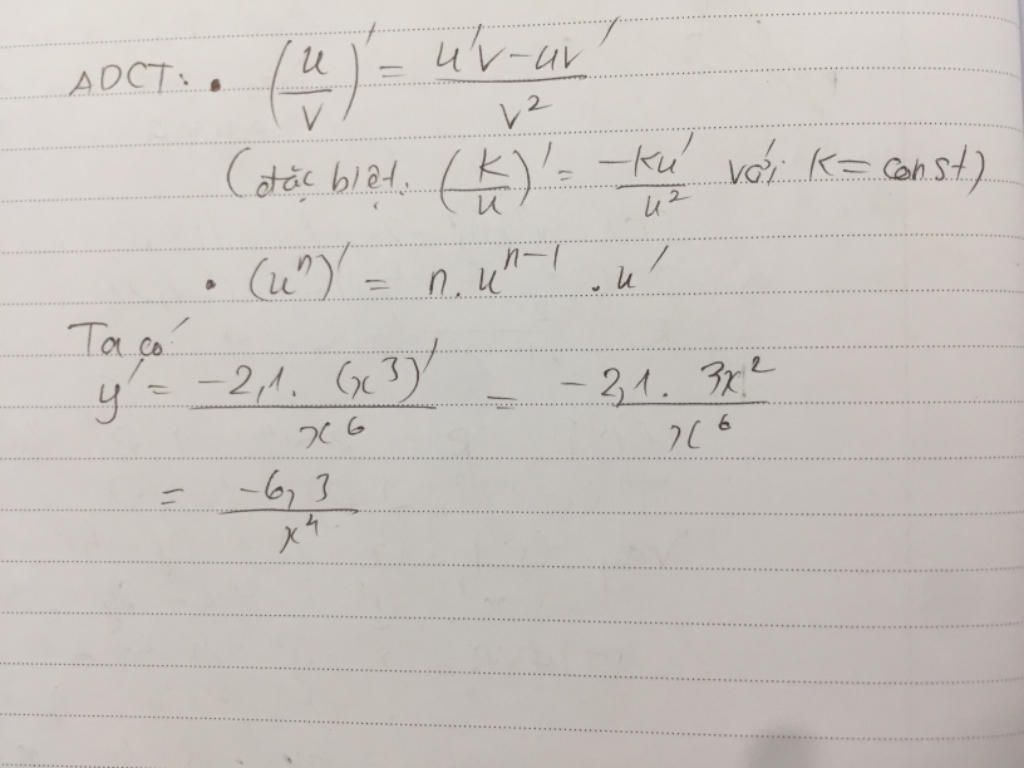 ADCT: • (u/v)' = (u'v - uv')/v²
(đặc biệt: (k/u)' = -ku'/u² với k = const)
• (uⁿ)' = n.uⁿ⁻¹.u'
Ta có
y' = -2,1.(x³)'/x⁶ = -2,1.3x²/x⁶
= -6,3/x⁴